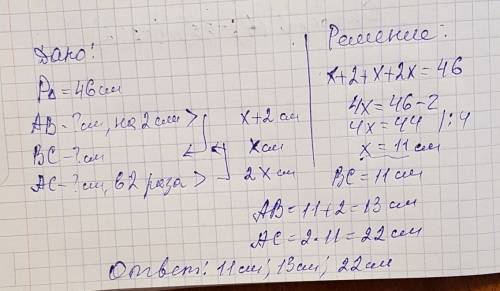 Дано:
P△ = 46 см
AB - ? см, на 2 см > x+2 см
BC - ? см x см
AC - ? см, в 2 раза > 2x см
Решение:
x+2+x+2x=46
4x=46-2
4x=44 /:4
x=11 см
BC=11 см
AB=11+2=13 см
AC=2·11=22 см
Ответ: 11 см; 13 см; 22 см